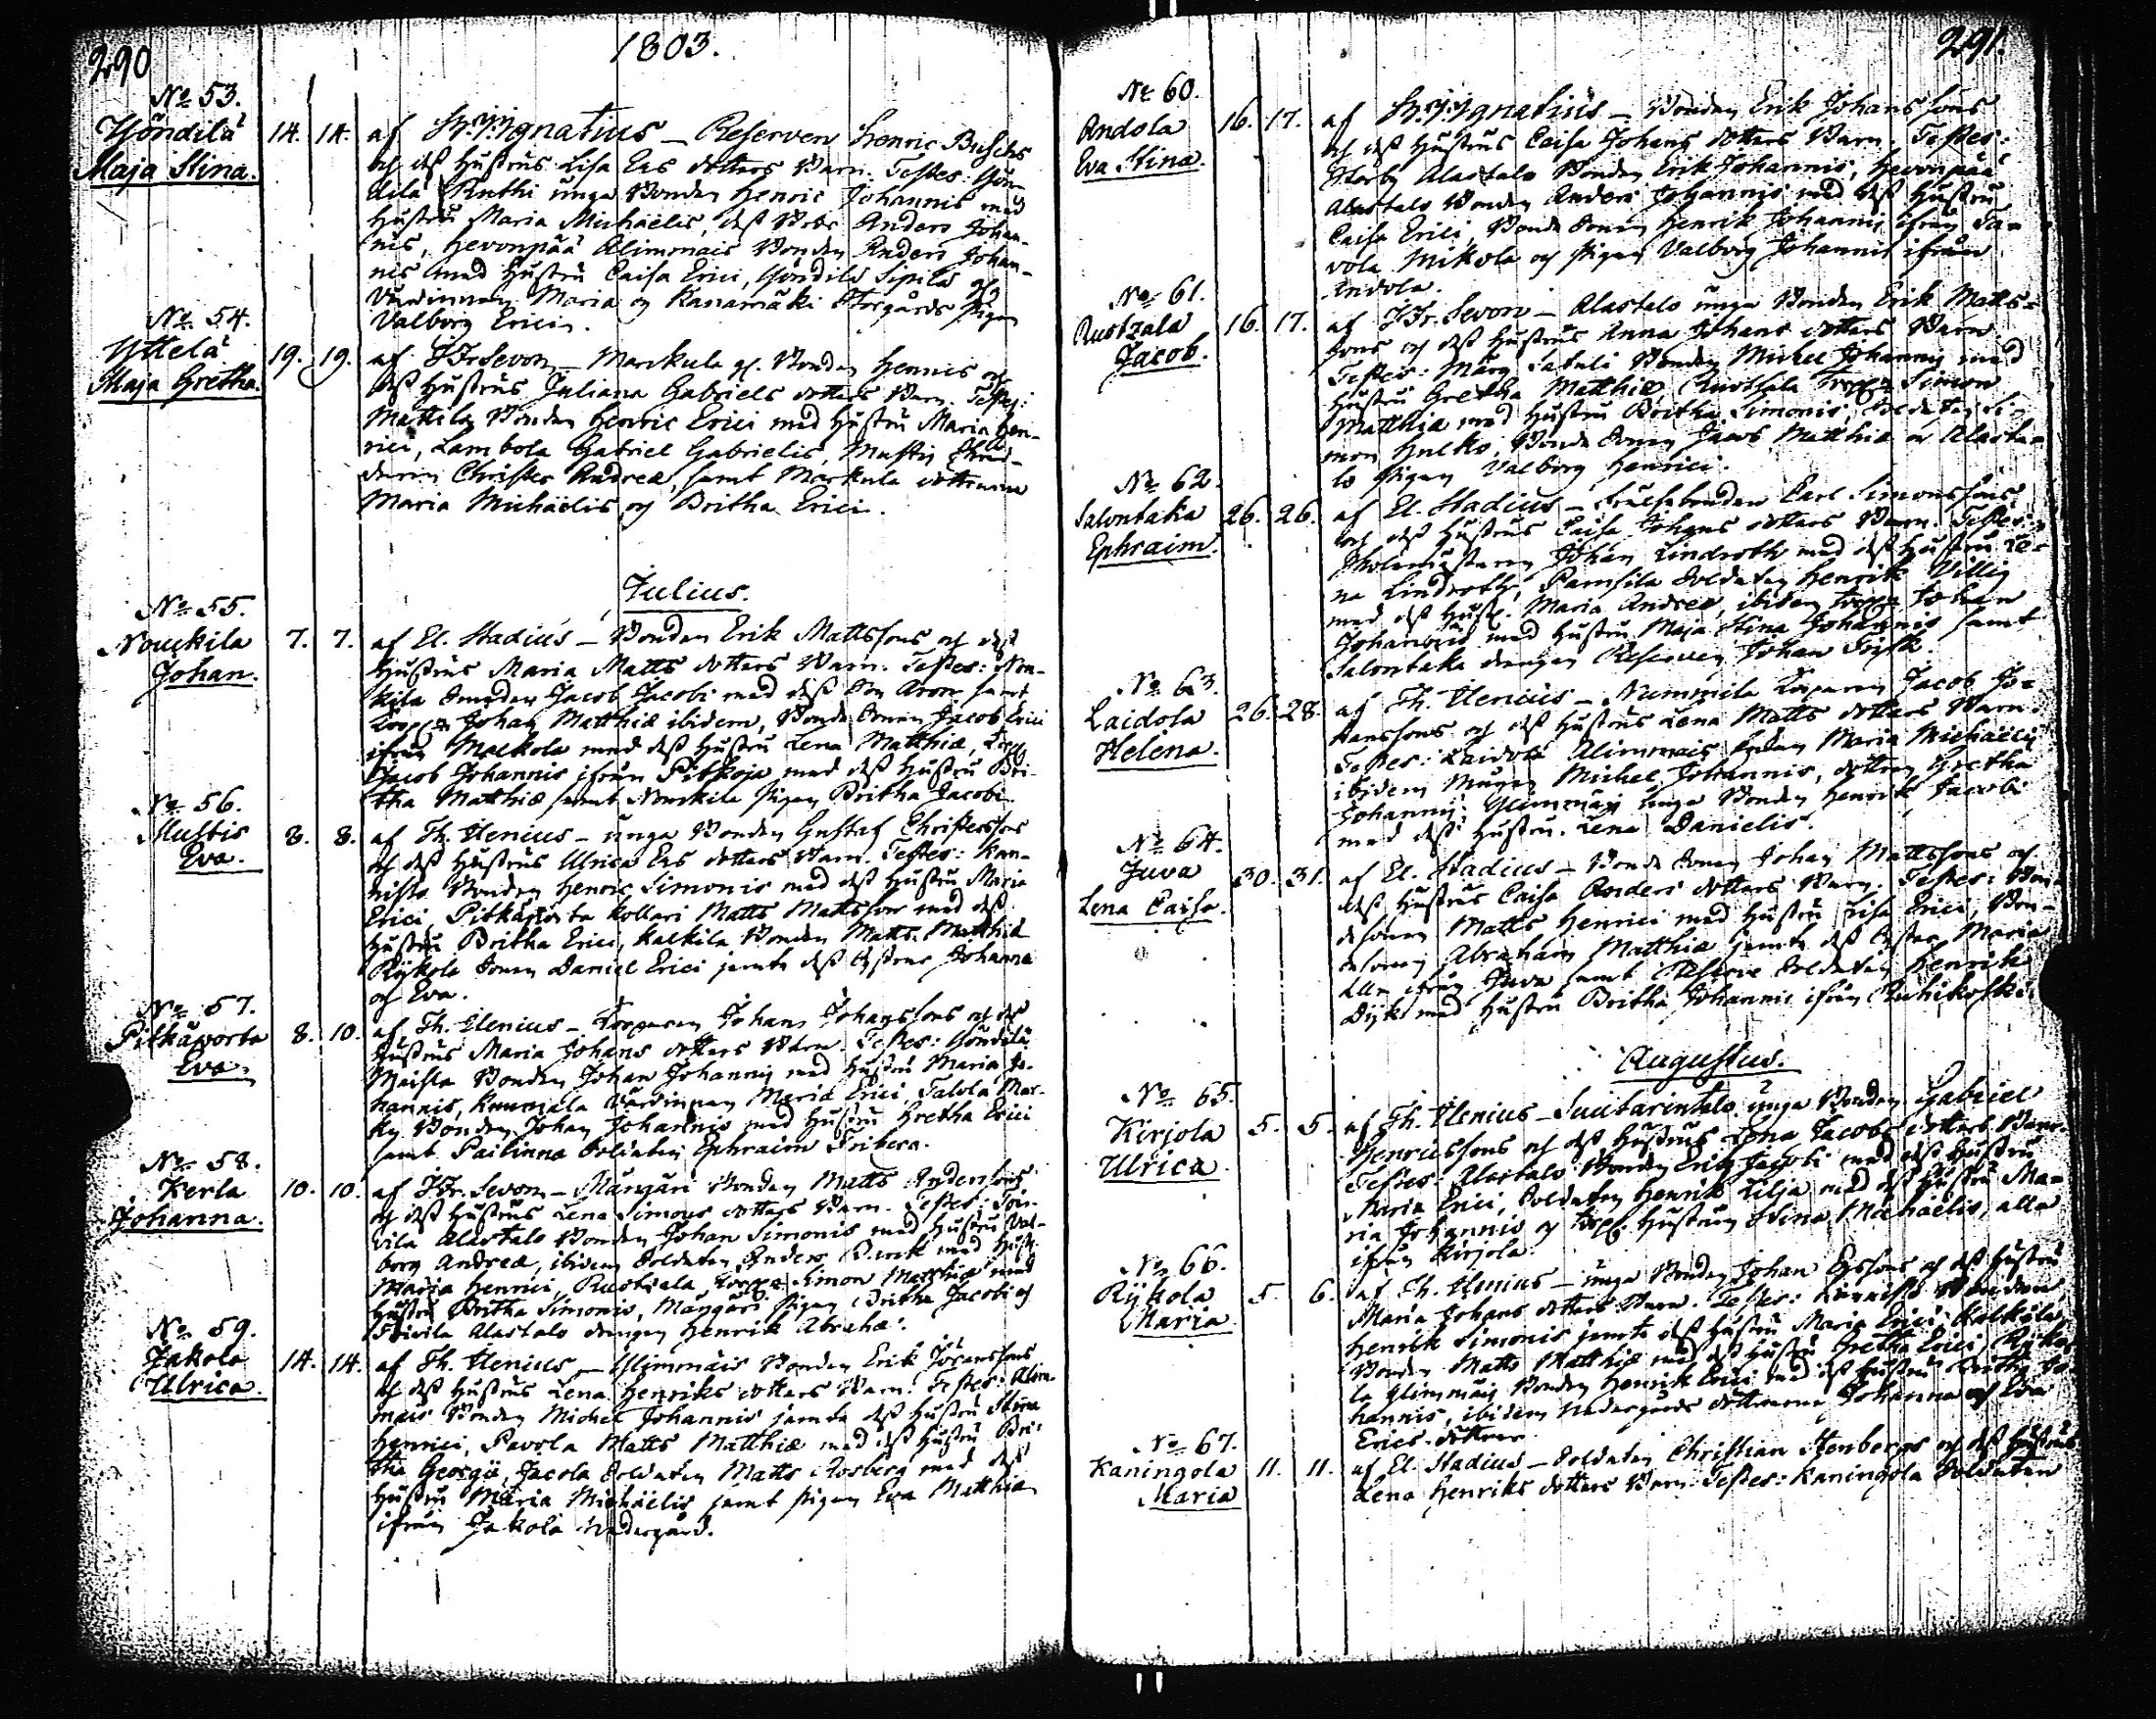 290
1803.
No 53.
Yöndilä
Maja Stina.
14. 14. af Ignatius — Reserven Henric Buschs
och dess Hustrus Lisa Ers dotters Barn. Testes: Yön-
dilä Knuthi unga Bonden Henric Johannis med
Hustru Maria Michaëlis, dess Anders Johan-
nis, Hevonpää Alimmais Bonden Anders Johan-
nis med Hustru Caisa Erici, Yöndilä Sipilä
Värdinnan Maria och Kanamäki Storgårds pigan
Valborg Erici.
No 54.
Yttelä
Maja Gretha.
19. 19. af Sevon — Markula Bonden Hennes och
dess Hustrus Juliana Gabriels dotters Barn. Testes:
Mattila Bonden Henric Erici med Hustru Maria Hen-
rici, Lambola Gabriel Gabrielis, Mustis
Christer Andreæ, samt Markula döttrarna
Maria Michaëlis och Britha Erici.
Julius.
No 55.
Nouckila
Johan.
7. 7. af El. Stadius — Bonden Erik Mattssons och dess
Hustrus Maria Matts dotters Barn. Testes: Nou-
kila Jacob Jacobi med dess Son Aron samt
Johan Matthiæ ibidem, Bonde Sonen Jacob Erici
ifrån Mackola med dess Hustru Lena Matthiæ,
Jacob Johannis ifrån Pitkoja med dess Hustru Bri-
tha Matthiæ samt Nouckila pigan Britha Jacobi
No 56.
Mustis
Eva.
8. 8. af Th. Elenius — unga Bonden Gustaf Christerssons
och dess Hustrus Ulrica Ers dotters Barn. Testes: Kan-
nisto Bonden Henric Simonis med dess Hustru Maria
Erici, Pitkäporta Kollari Matts Mattsson med dess
Hustru Britha Erici, Kalkila Bonden Matts Matthiæ
Rykola Sonen Daniel Erici jemte dess Systrar Johanna
och Eva.
No 57.
Pitkäporta
Eva.
8. 10. af Th. Elenius — Torparen Johan Johanssons och dess
Hustrus Maria Johans dotters Barn. Testes: Yöndilä
Maisla Bonden Johan Johannis med Hustru Maria Jo-
hannis, Värdinnan Maria Erici, Talola
Bonden Johan Johannis med Hustru Gretha Erici
samt Pailinna Soldaten Ephraim Friberg.
No 58.
Kerla
Johanna.
10. 10. af Sevon — Mängäri Bonden Matts Anderssons
och dess Hustrus Lena Simons dotters Barn. Testes: Toi-
vila Alastalo Bonden Johan Simonis med Hustru Val-
borg Andreæ, ibidem Soldaten Anders med
Maria Henrici, Ruotzala Simon Matthiæ med
Hustru Britha Simonis, Mängäri pigan Britha Jacobi och
Toivila Alastalo drengen Henrik Abrahæ.
No 59.
Jakola
Ulrica.
14. 14. af Th. Elenius — Ylimmäis Bonden Erik Johanssons
och dess Hustrus Lena Henriks dotters Barn. Testes: Alim-
mais Bonden Michel Johannis jemte dess Hustru Stina
Henrici, Pavola Matts Matthiæ med dess Hustru Bri-
tha Georgii, Jacola Soldaten Matts Rosberg med dess
Hustru Maria Michaëlis jemt pigan Eva Matthiæ
ifrån Jakola Nedergård.
291.
No 60.
Andola
Eva Stina.
16. 17. af Ignatius — Bonden Erik Johanssons
och dess Hustrus Caisa Johans dotters Barn. Testes:
Storby Alastalo Bonden Erik Johannis, Hevonpää
Alastalo Bonden Anders Johannis med dess Hustru
Caisa Erici, Bonde Sonen Henrik Johannis ifrån Ta-
vola Mikola och pigan Valborg Johannis ifrån
Andola.
No 61.
Ruotzala
Jacob.
16. 17. af Sevon — Alastalo unga Bonden Erik Matts-
sons och dess Hustrus Anna Johans dotters Barn
Testes: Bonden Michel Johannis med
Hustru Gretha Matthiæ, Ruotsala Simon
Matthiæ med Hustru Britha Simonis, Soldaten Si-
mon Hulko, Bonde Sonen Jacob Matthiæ och Alasta-
lo pigan Valborg Henrici.
No 62.
Salontaka
Ephraim.
26. 26. af El. Stadius — Frälsebonden Carl Simonssons
och dess Hustrus Caisa Johans dotters Barn. Testes:
Johan Lindroth med dess Hustru Le-
na Lindroth, Pamsila Soldaten Henrik Villig
med dess Hustr. Maria Andreæ, ibidem Johan
Johannis med Hustru Maja Stina Johannis samt
Salontaka drengen Reserven Johan Frisk.
No 63.
Laidola
Helena.
26. 28. af Th. Elenius — Nummila Torparen Jacob Jo-
hanssons och dess Hustrus Lena Matts dotters Barn.
Testes: Laidola Alimmais Maria Michaëlis
ibidem Michel Johannis, dottren Gretha
Johannis, Ylimmäis unga Bonden Henrik Jacobi
med dess Hustru Lena Danielis.
No 64.
Juva
Lena Caisa.
30. 31. af El. Stadius — Bonde Sonen Johan Mattssons och
dess Hustrus Caisa Anders dotters Barn. Testes: Bon-
desonen Matts Henrici med Hustru Lisa Erici, Bon-
desonen Abraham Matthiæ jemte dess Syster Maria
alla ifrån Juva samt Reserve Soldaten Henrik
Dyk med Hustru Britha Johannis ifrån Ruhikoski.
Augustus.
No 65.
Kirjola
Ulrica
5. 5. af Th. Elenius — Suutarintalo unga Bonden Gabriel
Henricssons och dess Hustrus Lena Jacobs dotters Barn.
Testes: Alastalo Bonden Erik Jacobi med dess Hustru
Maria Erici, Soldaten Henrik Lilja med dess Hustru Ma-
ria Johannis och Hustrun Stina Michaëlis, alla
ifrån Kirjola.
No 66.
Rykola
Maria
5. 6. af Th. Elenius — unga Bonden Johan Erssons och dess Hustru
Maria Johans dotters Barn. Testes: Kannisto Bonden
Henrik Simonis jemte dess Hustru Maria Erici, Kalkila
Bonden Matts Matthiæ med dess Hustru Gretha Erici, Ryko-
la Ylimmäis Bonden Henrik Erici med dess Hustru Britha Jo-
hannis, ibidem Nedergårds döttrarna Johanna och Eva
Erics döttrar
No 67.
Kaningola
Maria
11. 11. af El. Stadius — Soldaten Christian Stenbergs och dess Hustrus
Lena Henriks dotters Barn. Testes: Kaningola Soldaten